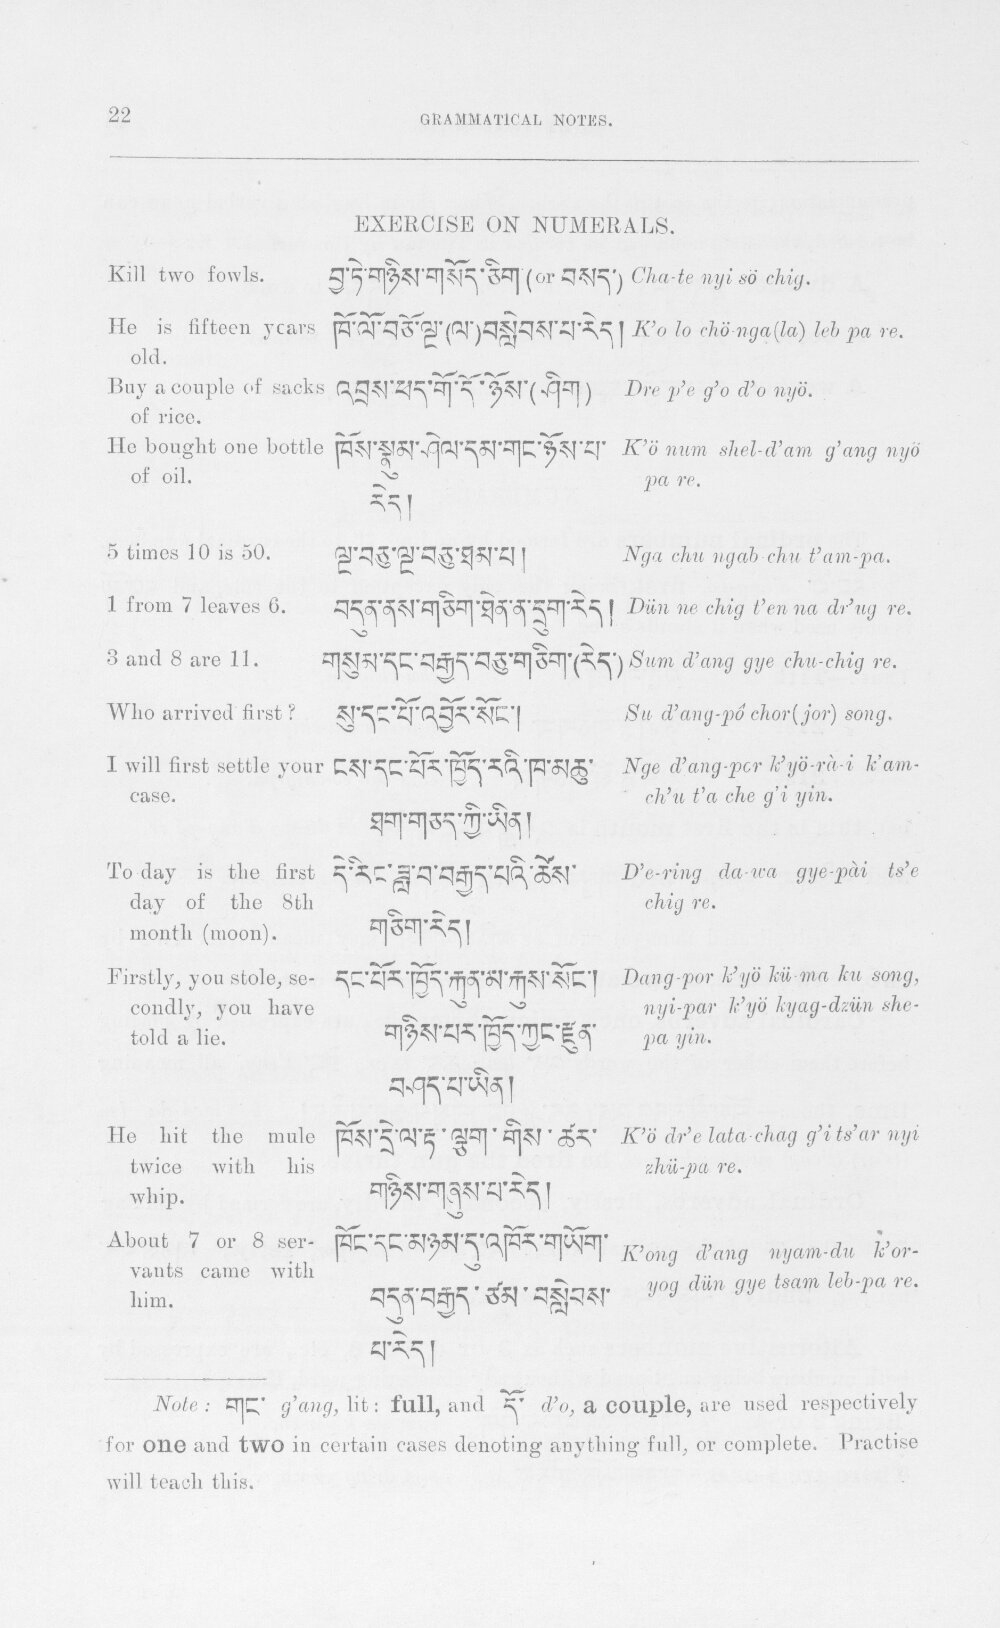 22
GRAMMATICAL NOTES.
EXERCISE ON NUMERALS.
Kill two fowls. བྱ་ཏེ་གཉིས་གསོད་ཅིག (or བསད་) Cha-te nyi sö chig.
He is fifteen years ཁོ་ལོ་བཅོ་ལྔ་(ལ་)བསླེབས་པ་རེད། K’o lo chö-nga(la) leb pa re.
old.
Buy a couple of sacks འབྲས་ཕད་གོ་དོ་ཉོས་(ཤིག) Dre p’e g’o d’o nyö.
of rice.
He bought one bottle ཁོས་སྣུམ་ཤེལ་དམ་གང་ཉོས་པ་ K’ö num shel-d’am g’ang nyö
of oil. རེད། pa re.
5 times 10 is 50. ལྔ་བཅུ་ལྔ་བཅུ་ཐམ་པ། Nga chu ngab-chu t’am-pa.
1 from 7 leaves 6. བདུན་ནས་གཅིག་ཐེན་ན་དྲུག་རེད། Dün ne chig t’en na dr’ug re.
3 and 8 are 11. གསུམ་དང་བརྒྱད་བཅུ་གཅིག་(རེད་) Sum d’ang gye chu-chig re.
Who arrived first? སུ་དང་པོ་འབྱོར་སོང་། Su d’ang-pó chor(jor) song.
I will first settle your ངས་དང་པོར་ཁྱོད་རའི་ཁ་མཆུ་ Nge d’ang-por k’yö-rà-i k’am-
case. ཐག་གཅད་ཀྱི་ཡིན། ch’u t’a che g’i yin.
To day is the first དེ་རིང་ཟླ་བ་བརྒྱད་པའི་ཚེས་ D’e-ring da-wa gye-pài ts’e
day of the 8th གཅིག་རེད། chig re.
month (moon).
Firstly, you stole, se- དང་པོར་ཁྱོད་རྐུན་མ་རྐུས་སོང་། Dang-por k’yö kü-ma ku song,
condly, you have གཉིས་པར་ཁྱོད་ཀྱང་རྫུན་ nyi-par k’yö kyag-dzün she-
told a lie. བཤད་པ་ཡིན། pa yin.
He hit the mule ཁོས་དྲེ་ལ་རྟ་ལྕག་གིས་ཚར་ K’ö dr’e lata-chag g’i ts’ar nyi
twice with his གཉིས་གཞུས་པ་རེད། zhü-pa re.
whip.
About 7 or 8 ser- ཁོང་དང་མཉམ་དུ་འཁོར་གཡོག་ K’ong d’ang nyam-du k’or-
vants came with བདུན་བརྒྱད་ཙམ་བསླེབས་ yog dün gye tsam leb-pa re.
him. པ་རེད།
Note: གང་ g’ang, lit: full, and དོ་ d’o, a couple, are used respectively
for one and two in certain cases denoting anything full, or complete. Practise
will teach this.